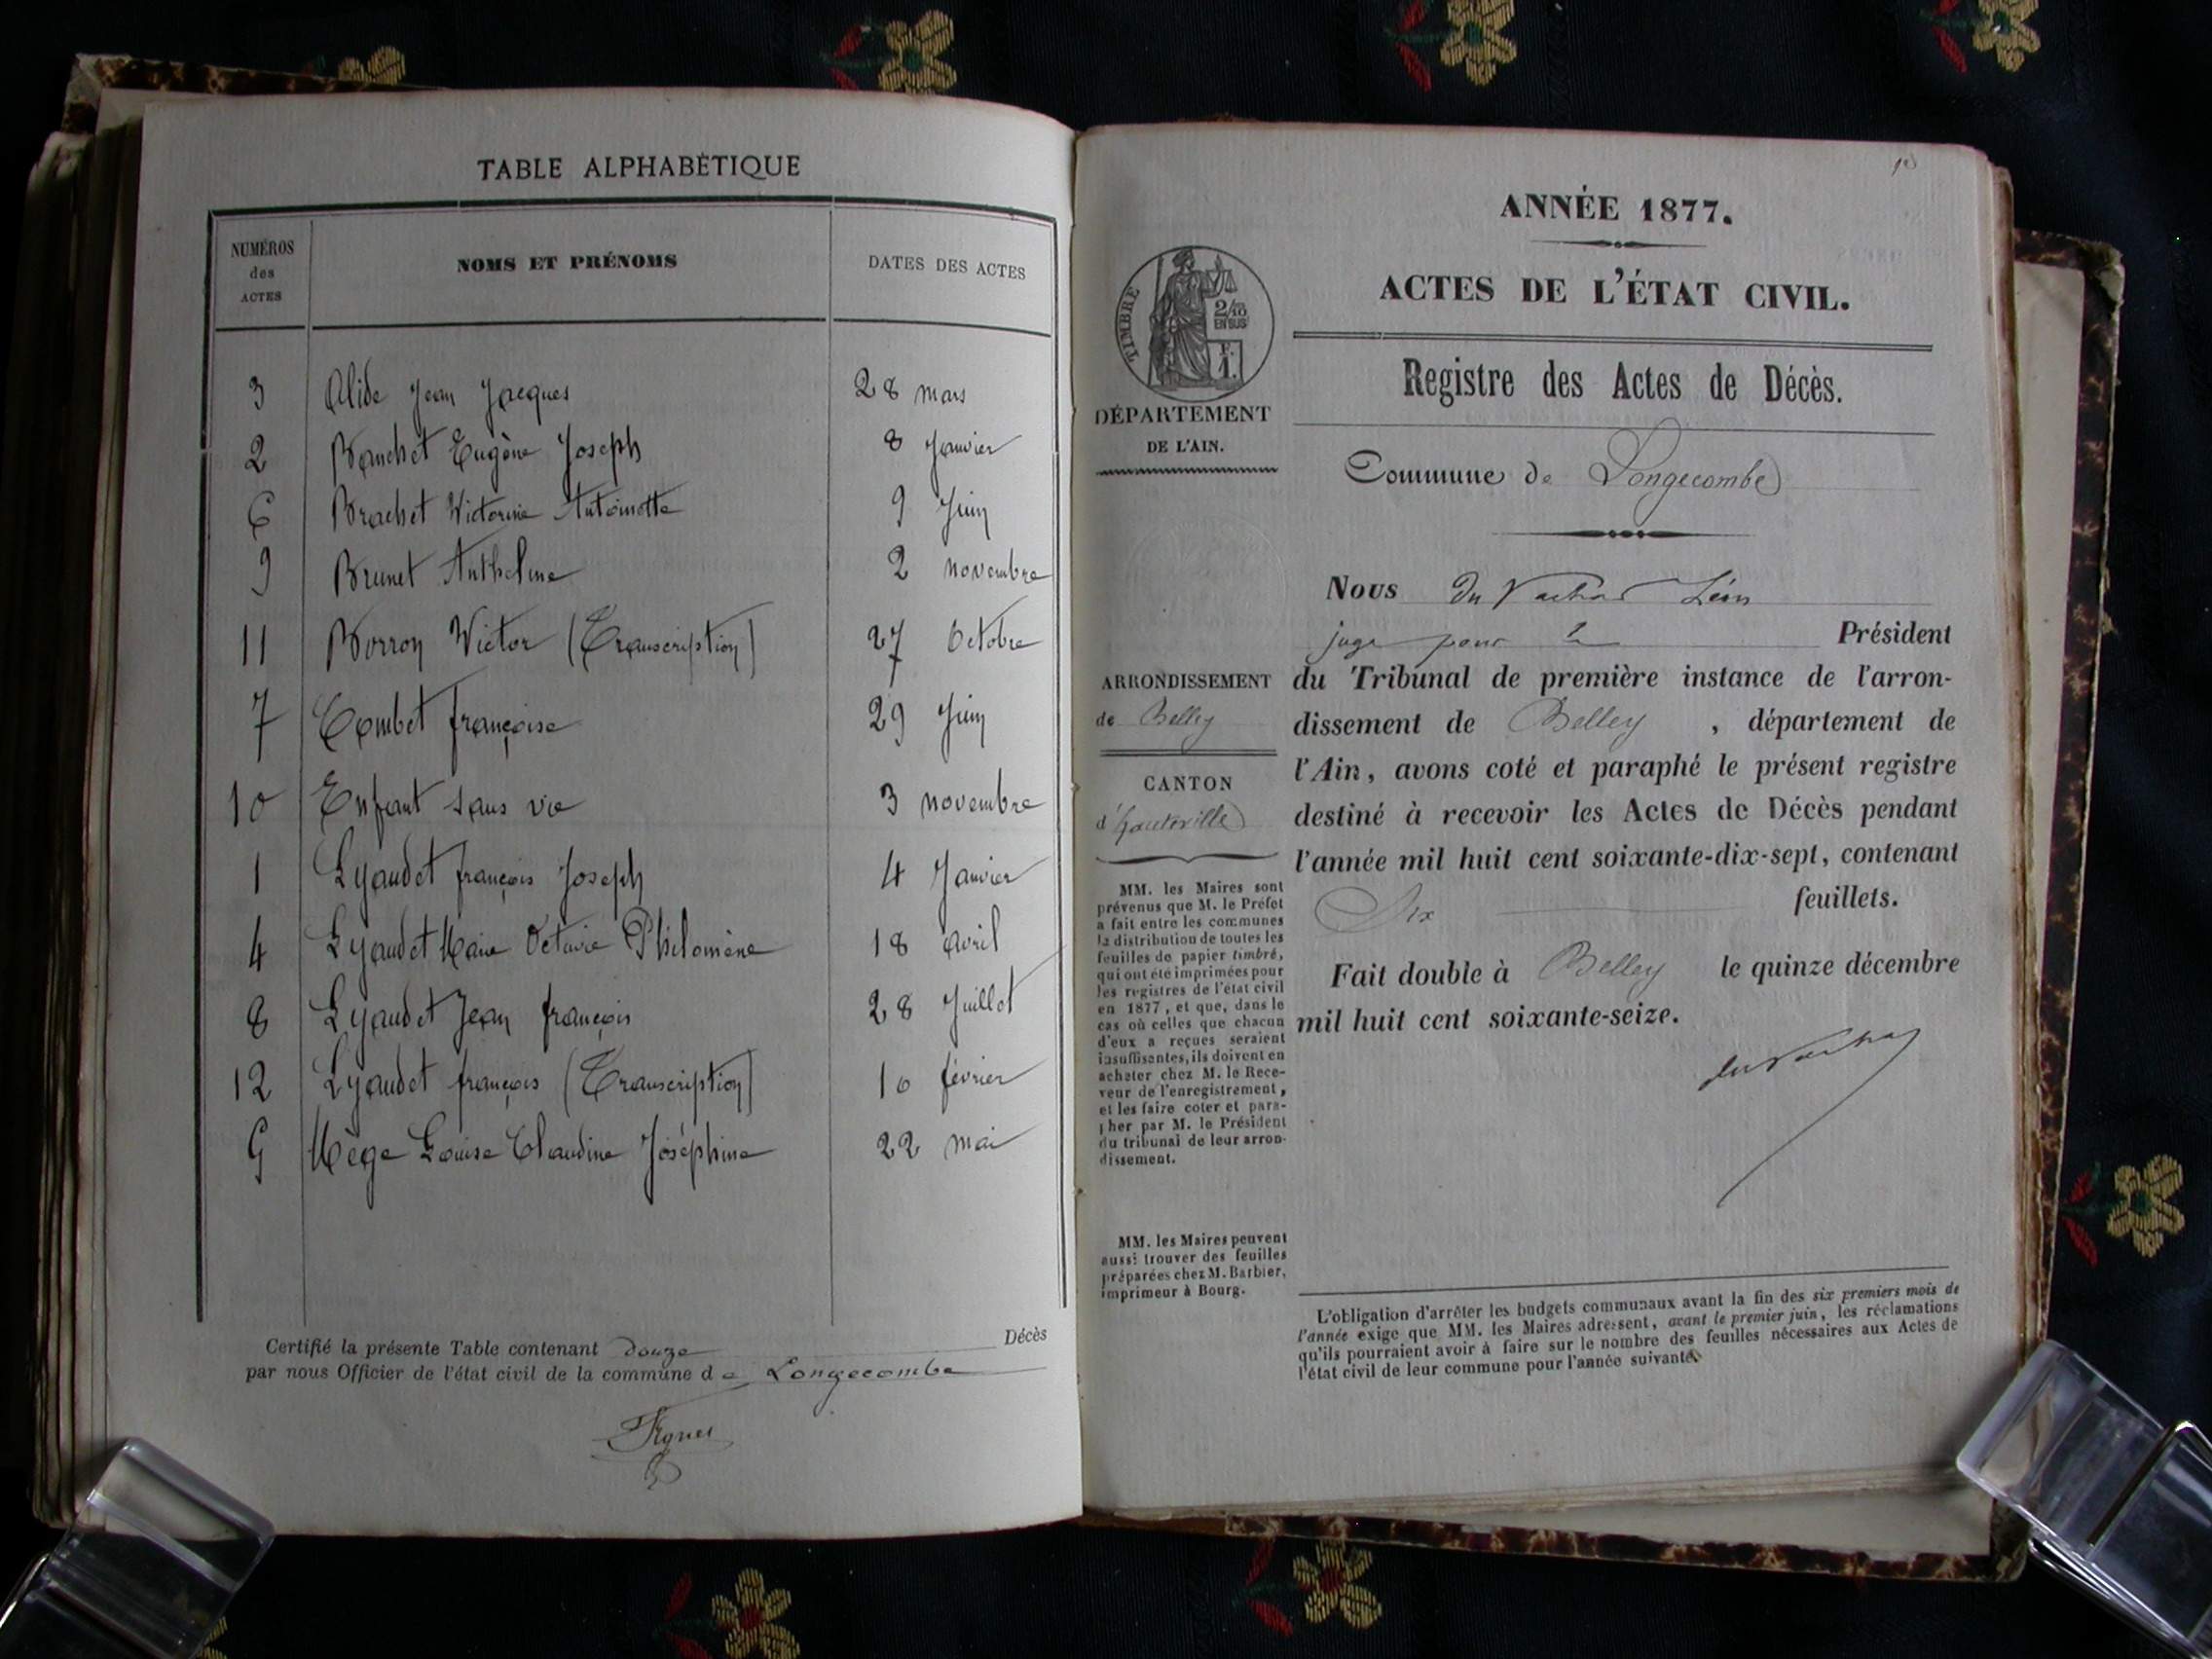 TABLE ALPHABÉTIQUE
NUMÉROS des ACTES
NOMS ET PRÉNOMS
DATES DES ACTES
3 Alide Jean Jacques 28 mars
2 Eugène Joseph 8 Janvier
6 Brachet Victorine Antoinette 9 Juin
9 Brunet Anthelme 2 novembre
11 Borron Victor (Transcription) 27 Octobre
7 Combet françoise 29 Juin
10 Enfant sans vie 3 novembre
1 Lyaudet françois Joseph 4 Janvier
4 Lyaudet Marie Octavie Philomène 18 avril
8 Lyaudet Jean françois 28 Juillet
12 Lyaudet françois (Transcription) 10 février
5 Mège Louise Claudine Joséphine 22 mai
Certifié la présente Table contenant douze Décès
par nous Officier de l'état civil de la commune de Longecombe
ANNÉE 1877.
ACTES DE L'ÉTAT CIVIL.
Registre des Actes de Décès.
Commune de Longecombe
TIMBRE
2/10
EN SUS
F.
1.
DÉPARTEMENT
DE L'AIN.
ARRONDISSEMENT
de Belley
CANTON
d'Hauteville
MM. les Maires sont
prévenus que M. le Préfet
a fait entre les communes
la distribution de toutes les
feuilles de papier timbré,
qui ont été imprimées pour
les registres de l'état civil
en 1877, et que, dans le
cas où celles que chacun
d'eux a reçues seraient
insuffisantes, ils doivent en
acheter chez M. le Rece-
veur de l'enregistrement,
et les faire coter et para-
pher par M. le Président
du tribunal de leur arron-
dissement.
MM. les Maires peuvent
aussi trouver des feuilles
préparées chez M. Barbier,
imprimeur à Bourg.
Nous du Vachat Léon
juge pour le Président
du Tribunal de première instance de l'arron-
dissement de Belley, département de
l'Ain, avons coté et paraphé le présent registre
destiné à recevoir les Actes de Décès pendant
l'année mil huit cent soixante-dix-sept, contenant
Six feuillets.
Fait double à Belley le quinze décembre
mil huit cent soixante-seize.
du Vachat
L'obligation d'arrêter les budgets communaux avant la fin des six premiers mois de
l'année exige que MM. les Maires adressent, avant le premier juin, les réclamations
qu'ils pourraient avoir à faire sur le nombre des feuilles nécessaires aux Actes de
l'état civil de leur commune pour l'année suivante.